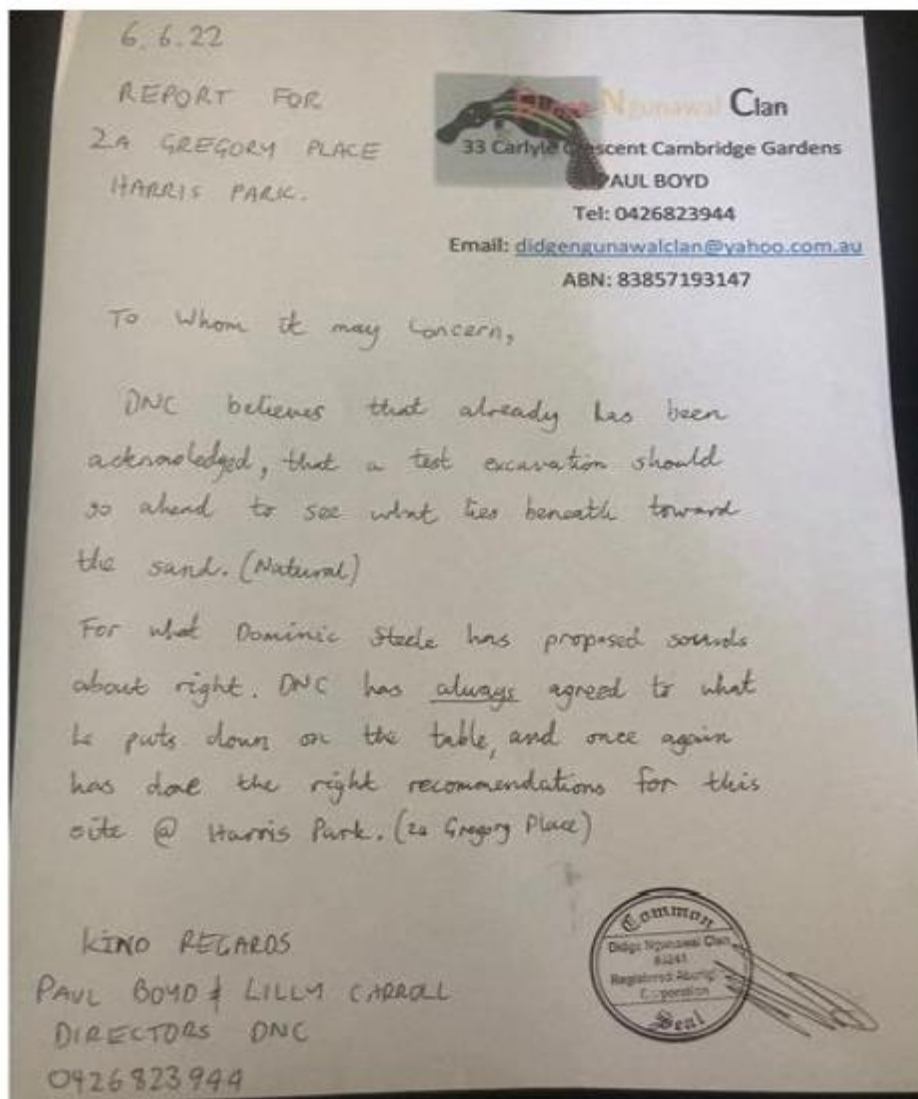 6.6.22
REPORT FOR
2A GREGORY PLACE
HARRIS PARK.
Didge Ngunawal Clan
33 Carlyle Crescent Cambridge Gardens
PAUL BOYD
Tel: 0426823944
Email: didgengunawalclan@yahoo.com.au
ABN: 83857193147
To Whom it may concern,
DNC believes that already has been
acknowledged, that a test excavation should
go ahead to see what lies beneath toward
the sand. (Natural)
For what Dominic Steele has proposed sounds
about right. DNC has always agreed to what
he puts down on the table, and once again
has done the right recommendations for this
site @ Harris Park. (2a Gregory Place)
KIND REGARDS
PAUL BOYD & LILLY CARROLL
DIRECTORS DNC
0426823944
Common
Didge Ngunawal Clan
Registered Aborigi
Corporation
Seal